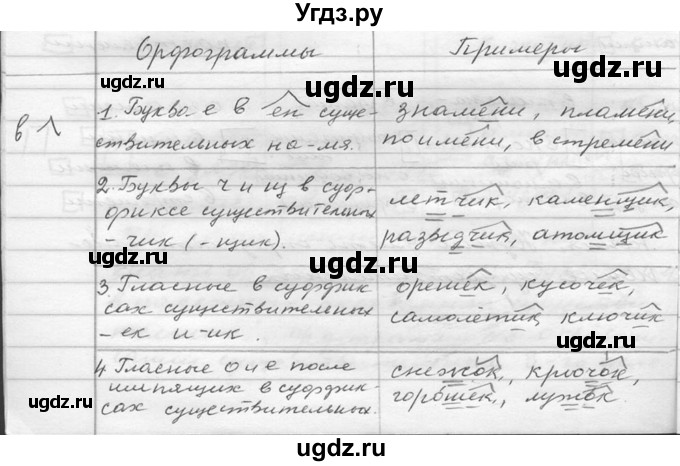 Угдз.ру
Орфограммы Примеры
в
1. Буква е в ен суще-
ствительных на -мя.
знамени, пламени,
по имени, в стремени
2. Буквы ч и щ в суф-
фиксе существительных
-чик (-щик).
летчик, каменщик,
разведчик, атомщик
3. Гласные в суффик
сах существительных
-ек и -ик.
орешек, кусочек,
самолётик, ключик
4. Гласные о и е после
шипящих в суффик-
сах существительных.
снежок, крючок,
горошек, лужок.
ugdz.ru ugdz.ru
ugdz.ru ugdz.ru
ugdz.ru ugdz.ru
ugdz.ru ugdz.ru
ugdz.ru